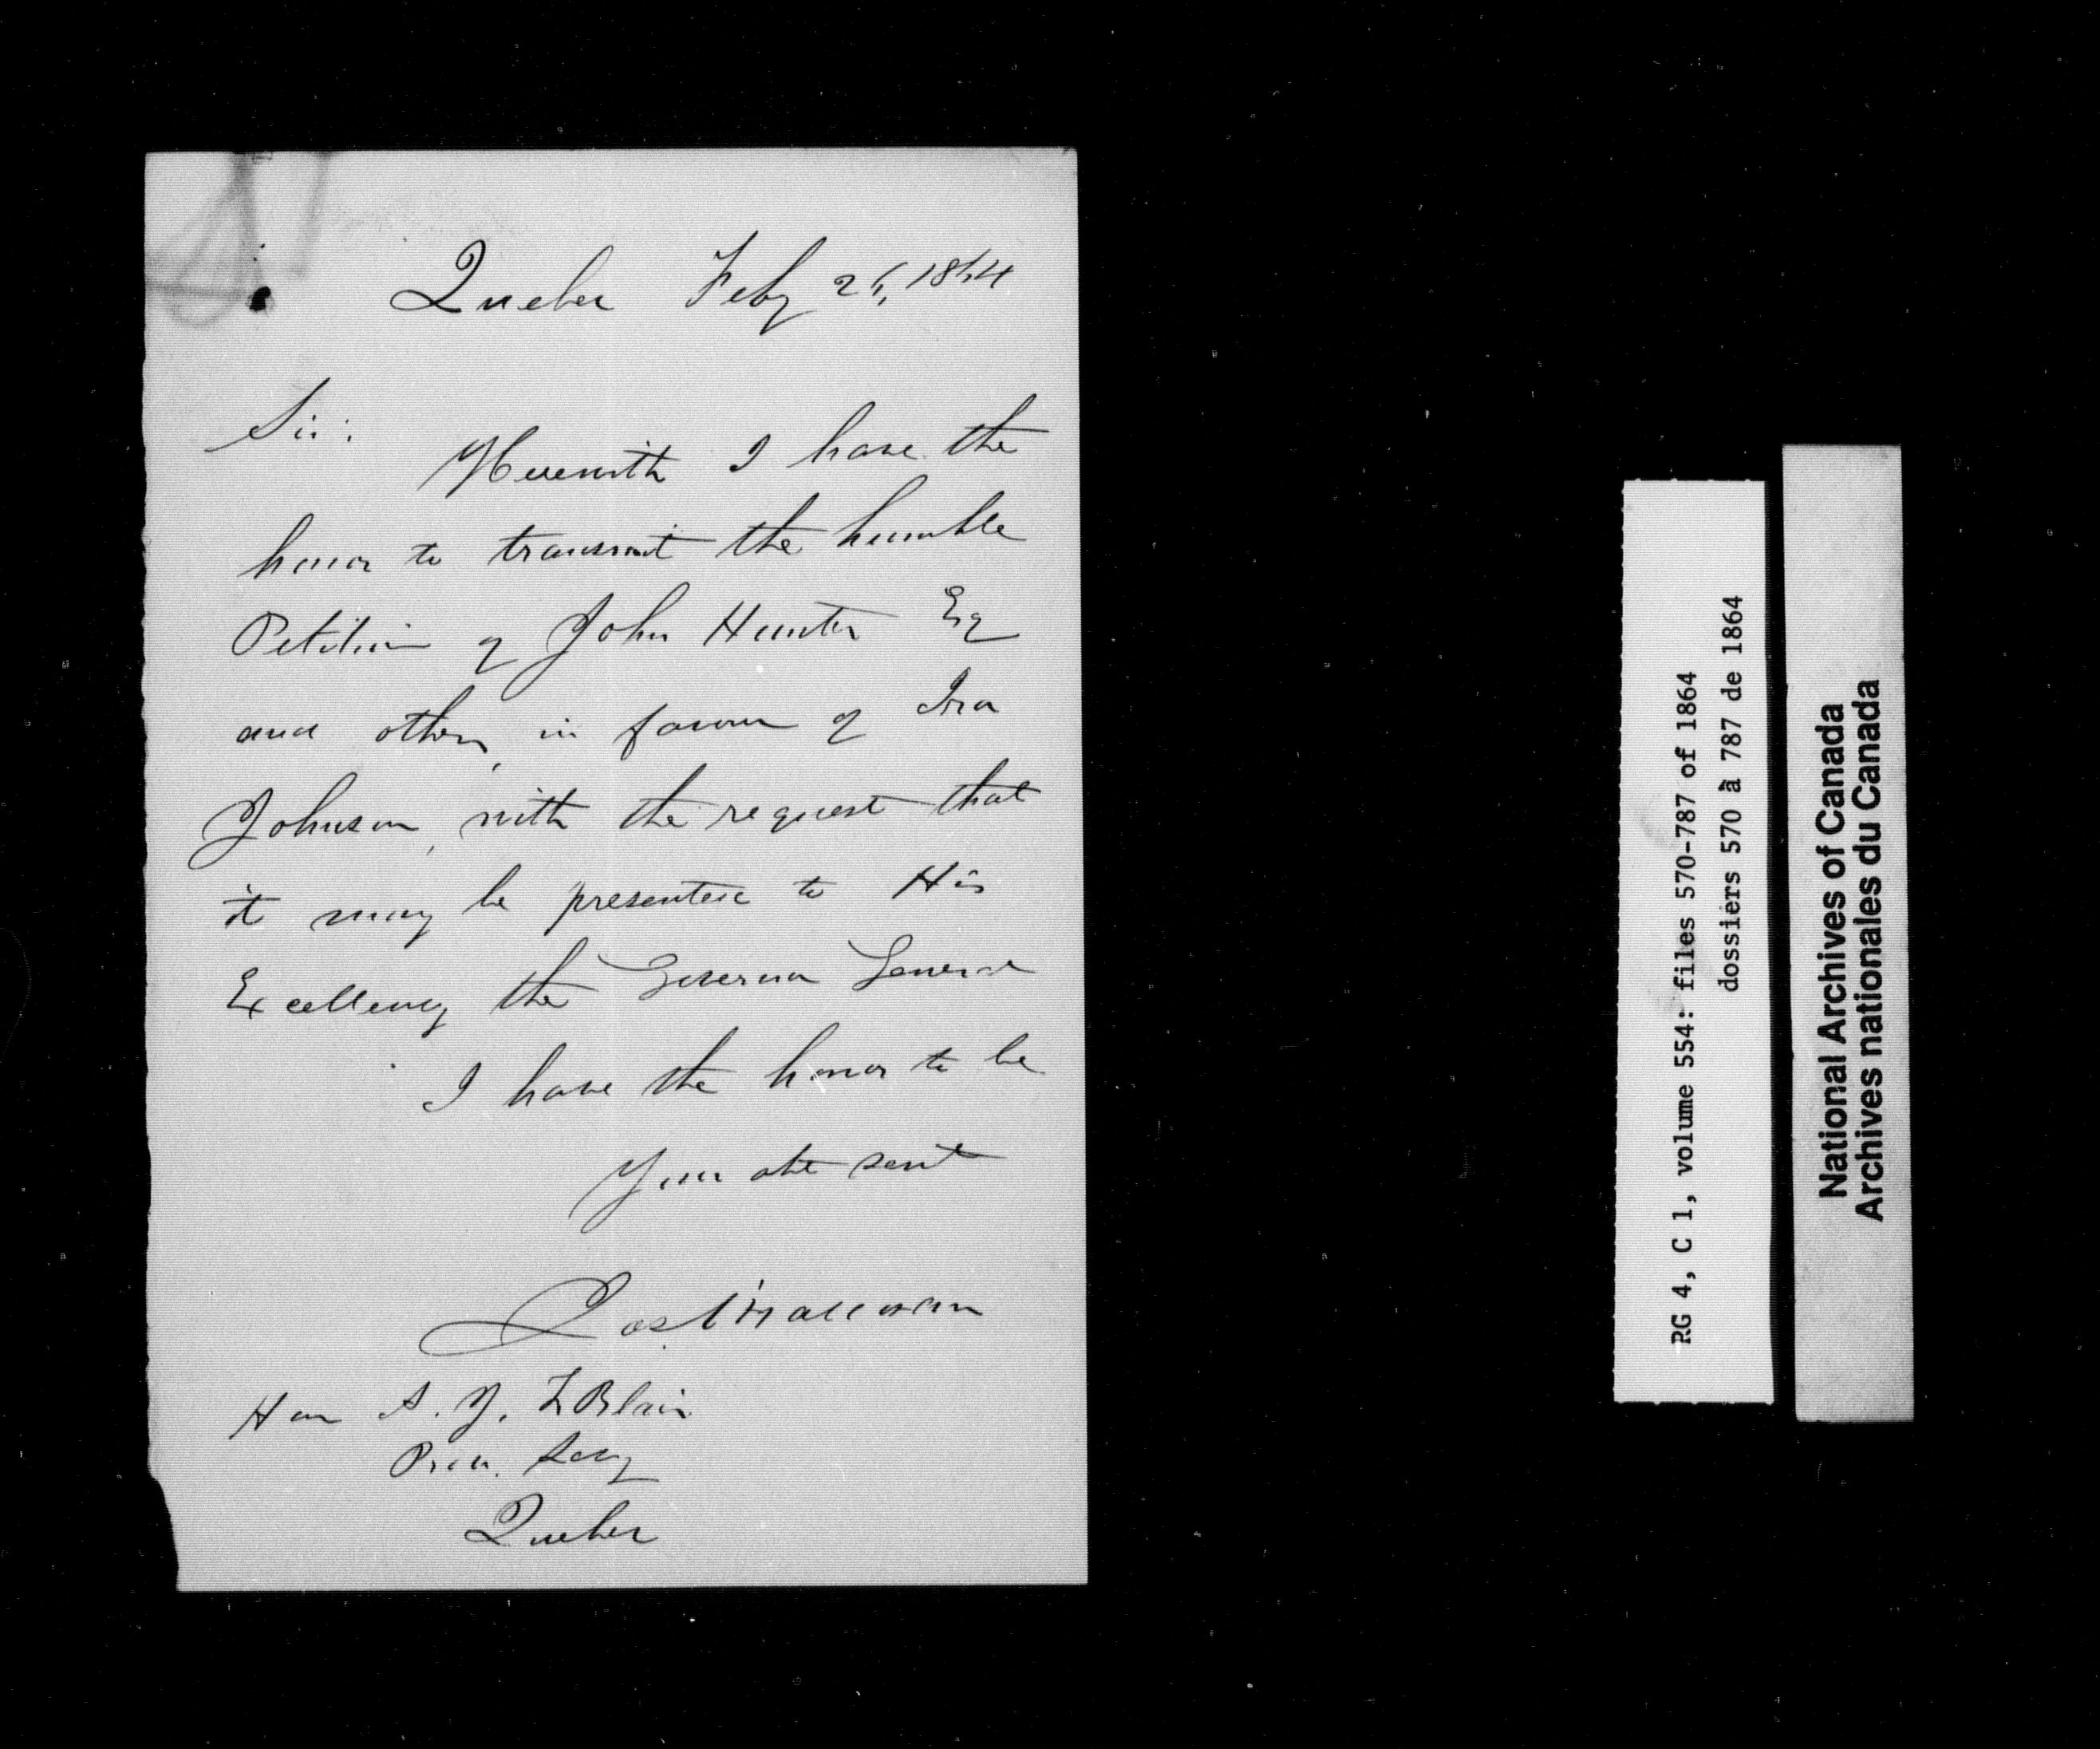 Quebec Feby 26, 1864
Sir:
Herewith I have the
honor to transmit the humble
Petition of John Hunter Esq
and others, in favour of Ira
Johnson, with the request that
it may be presented to His
Excellency the Governor General
I have the honor to be
Your obt servt
Hon A. J. F Blair
Prov. Secy
Quebec
RG 4, C 1, volume 554: files 570-787 of 1864
dossiers 570 à 787 de 1864
National Archives of Canada
Archives nationales du Canada